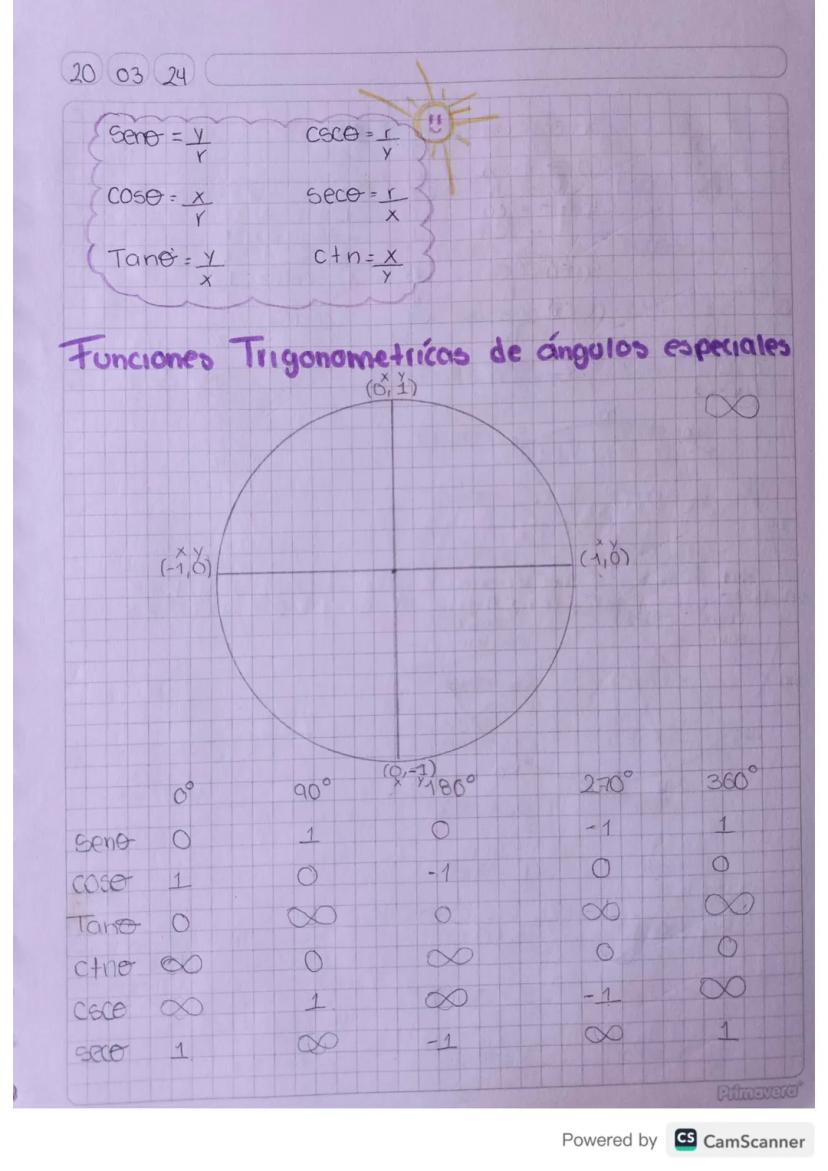 20 03 24
Senθ = y/r    cscθ = r/y
cosθ = x/r    secθ = r/x
Tanθ = y/x    ctn = x/y
Funciones Trigonometrícas de ángulos especiales
x y
(0, 1)
∞
x y
(-1,0)
x y
(1,0)
(0,-1)
x y
0° 90° 180° 270° 360°
senθ 0 1 0 -1 1
cosθ 1 0 -1 0 0
Tanθ 0 ∞ 0 ∞ ∞
ctnθ ∞ 0 ∞ 0 0
cscθ ∞ 1 ∞ -1 ∞
secθ 1 ∞ -1 ∞ 1
Primavera
Powered by CS CamScanner